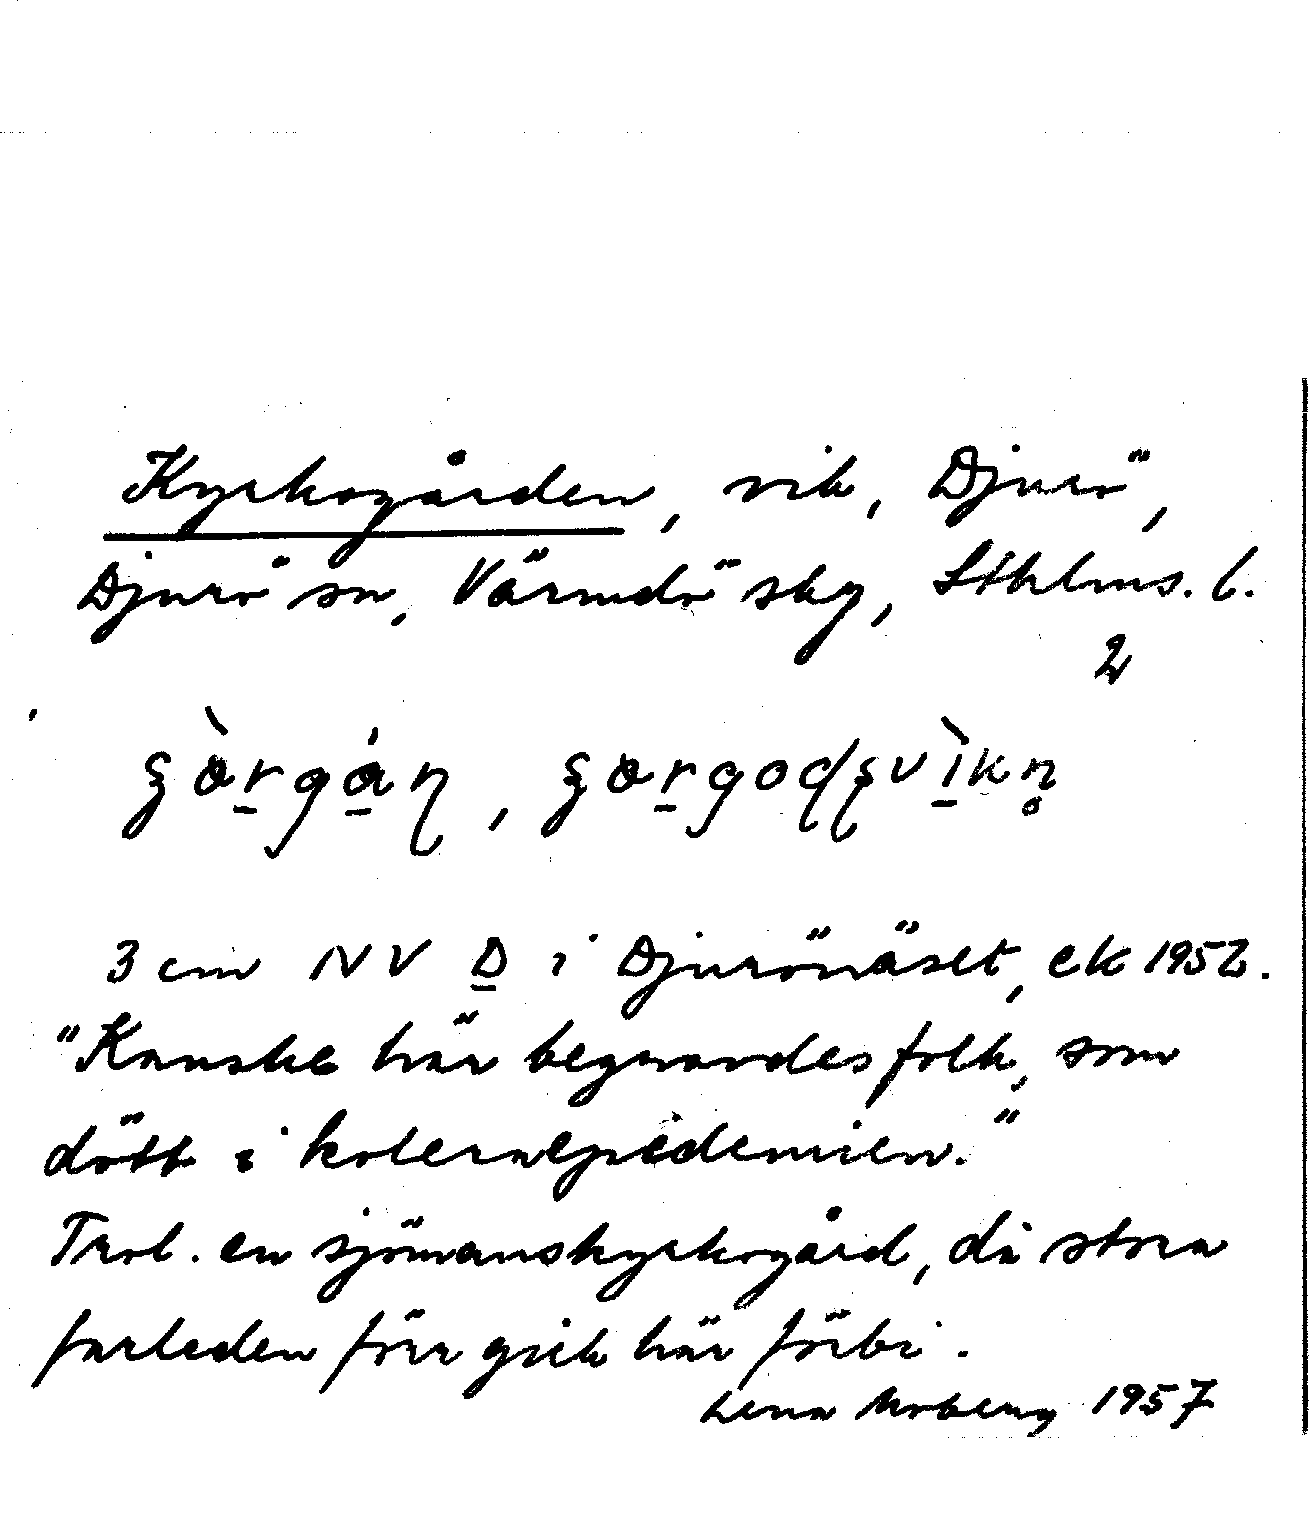 Kyrkogården, vik, Djurö,
Djurö sn, Värmdö skg, Sthlms. l.
2
3 cm NV D i Djurönäset, ek 1952.
"Kanske här begravdes folk, som
dött i koleraepedemien."
Trol. en sjömanskyrkogård, då stora
farleden förr gick här förbi.
Lena Moberg 1957